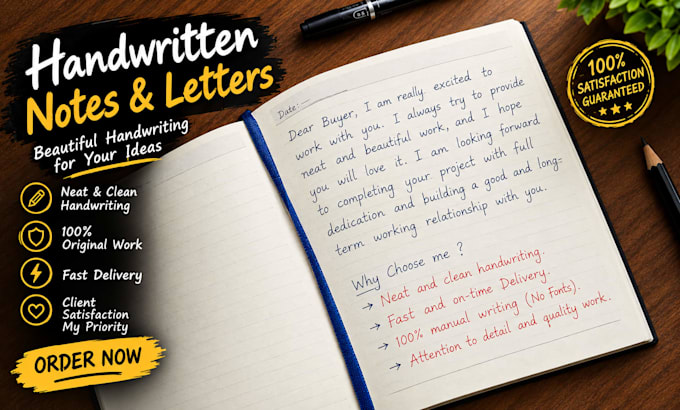 Handwritten
Notes & Letters
Beautiful Handwriting
for Your Ideas
Neat & Clean
Handwriting
100%
Original Work
Fast Delivery
Client
Satisfaction
My Priority
ORDER NOW
Date:
Dear Buyer, I am really excited to
work with you. I always try to provide
neat and beautiful work, and I hope
you will love it. I am looking forward
to completing your project with full
dedication and building a good and long=
term working relationship with you.
Why Choose me ?
→ Neat and clean handwriting.
→ Fast and on-time Delivery.
→ 100% manual writing (No Fonts).
→ Attention to detail and quality work.
100%
SATISFACTION
GUARANTEED